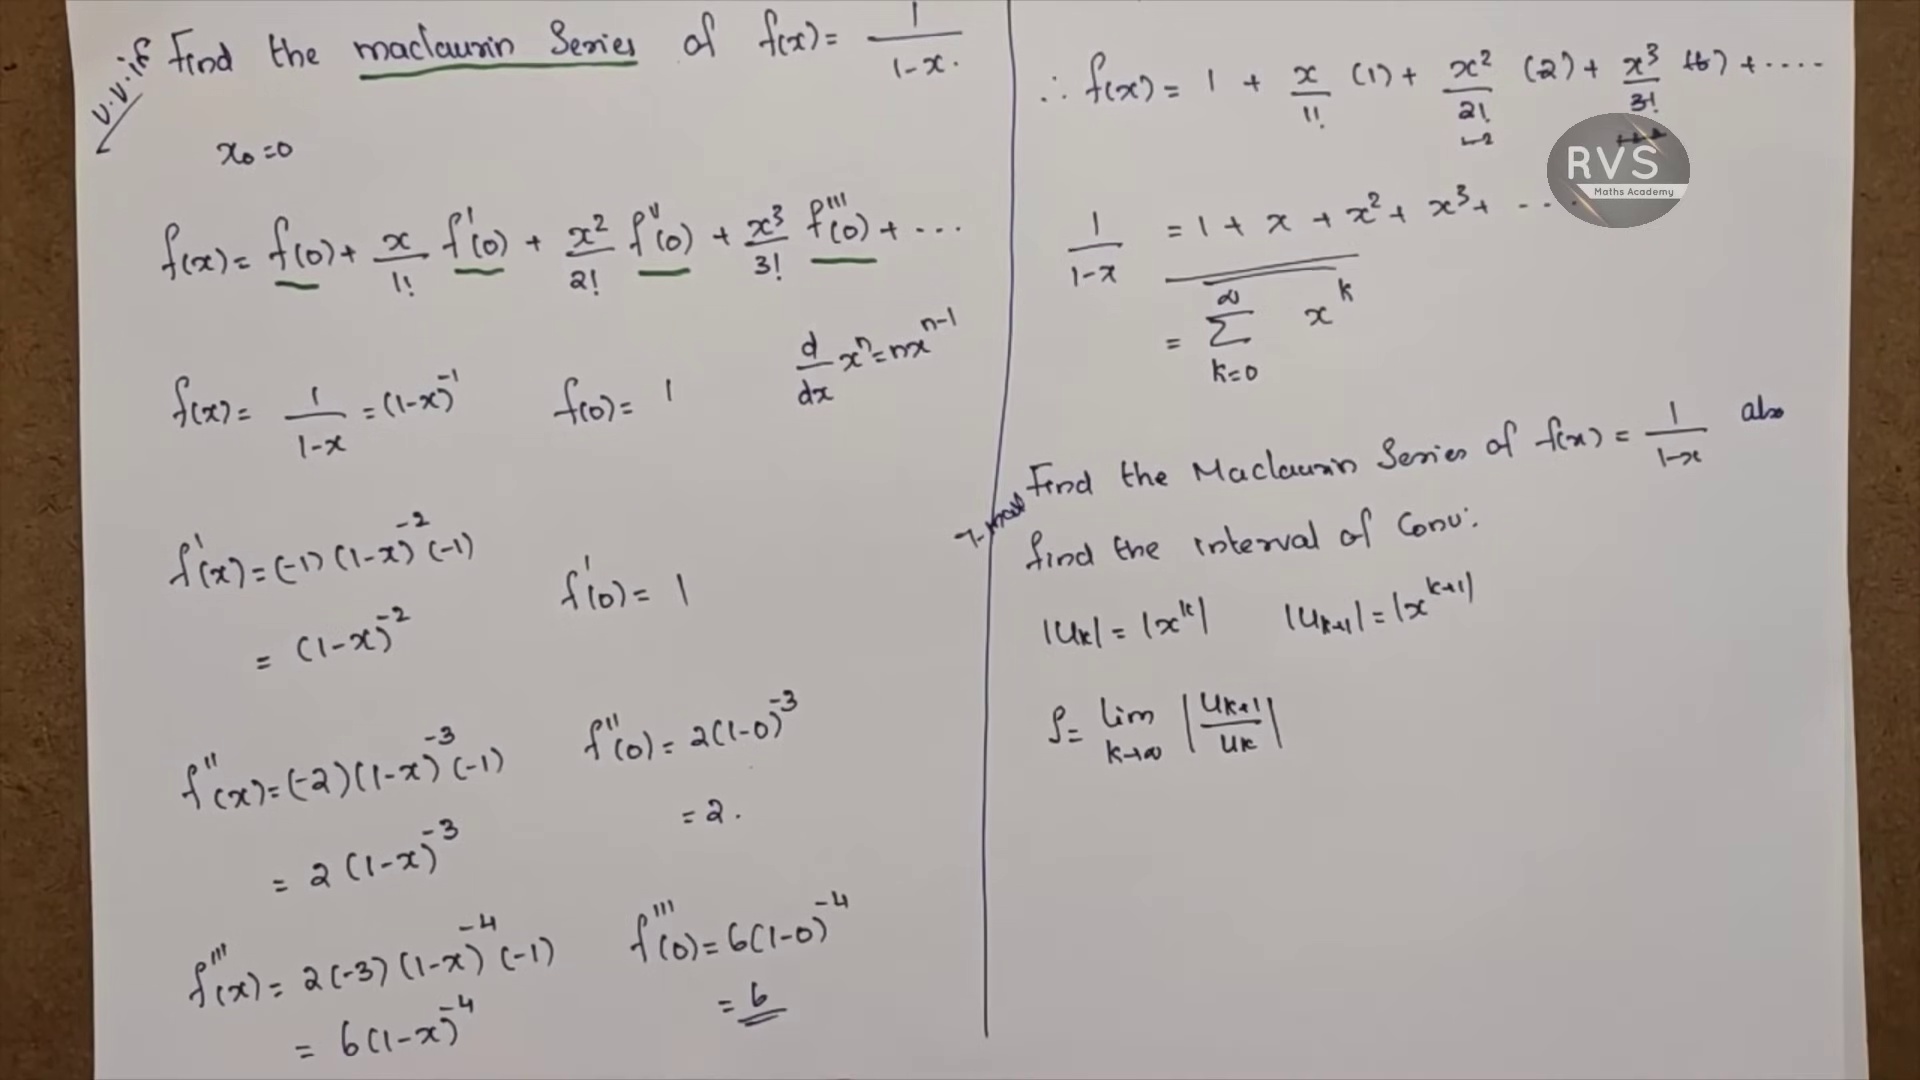 v.v.if Find the maclaurin Series of f(x) = 1/(1-x).
x₀=0
f(x) = f(0) + x/1! f'(0) + x²/2! f''(0) + x³/3! f'''(0) + ...
d/dx xⁿ = nxⁿ⁻¹
f(x) = 1/(1-x) = (1-x)⁻¹ f(0) = 1
f'(x) = (-1)(1-x)⁻²(-1) f'(0) = 1
= (1-x)⁻²
f''(x) = (-2)(1-x)⁻³(-1) f''(0) = 2(1-0)⁻³
= 2(1-x)⁻³ = 2.
f'''(x) = 2(-3)(1-x)⁻⁴(-1) f'''(0) = 6(1-0)⁻⁴
= 6(1-x)⁻⁴ = 6
∴ f(x) = 1 + x/1! (1) + x²/2! (2) + x³/3! (6) + ....
RVS
Maths Academy
1/(1-x) = 1 + x + x² + x³ + ...
= ∑_{k=0}^{∞} x^k
Find the Maclaurin Series of f(x) = 1/(1-x) also
find the interval of Conv.
|u_k| = |x^k| |u_{k+1}| = |x^{k+1}|
ρ = lim_{k→∞} |u_{k+1}/u_k|